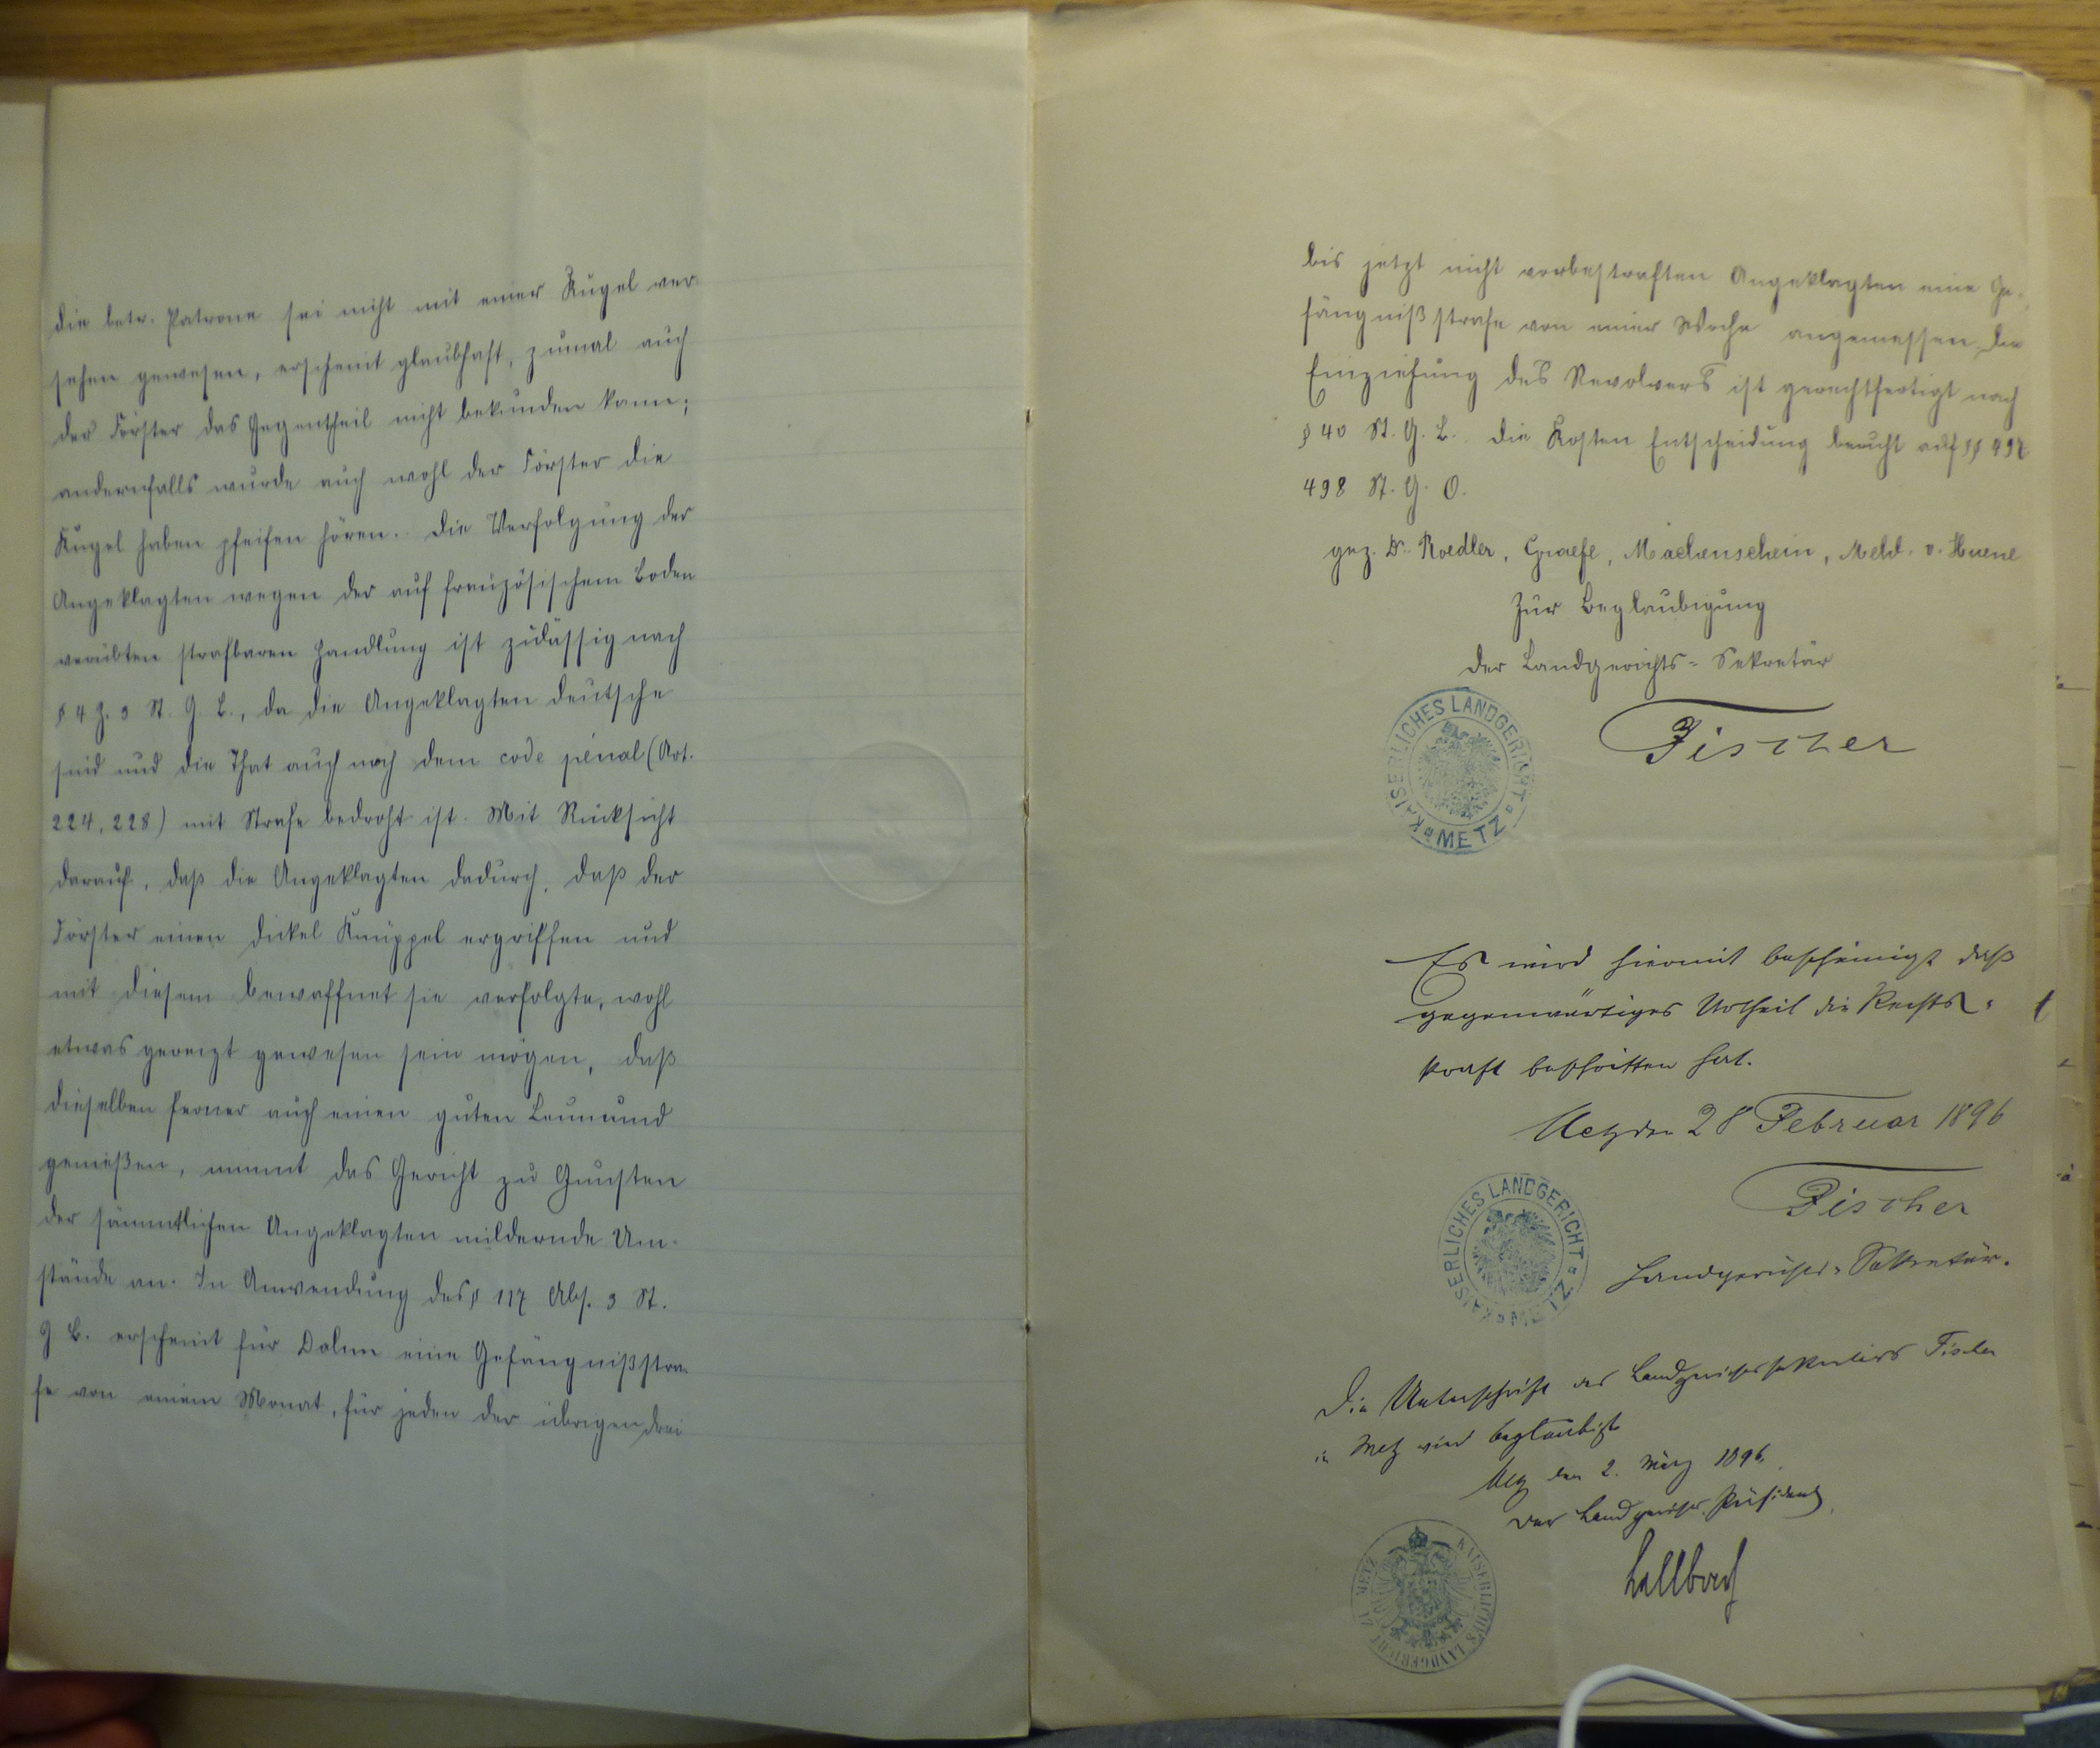 die betr. Patrone sei nicht mit einer Kugel ver-
sehen gewesen, erscheint glaubhaft, zumal auch
der Förster das Gegentheil nicht bekunden kann;
andernfalls wurde auch wohl der Förster die
Kugel haben pfeifen hören. Die Verfolgung der
Angeklagten wegen der auf französischem Boden
verübten strafbaren Handlung ist zulässig nach
§ 4 Z. 3 St. G. B., da die Angeklagten Deutsche
sind und die That auch nach dem code pénal (Art.
224, 228) mit Strafe bedroht ist. Mit Rücksicht
darauf, daß die Angeklagten dadurch, daß der
Förster einen dickel Knüppel ergriffen und
mit diesem bewaffnet sie verfolgte, wohl
etwas gereizt gewesen sein mögen, daß
dieselben ferner auch einen guten Leumund
genießen, nimmt das Gericht zu Gunsten
der sämmtlichen Angeklagten mildernde Um-
stände an. In Anwendung des § 117 Abs. 3 St.
G B. erscheint für Dolm eine Gefängnißstra-
fe von einem Monat, für jeden der übrigen drei
bis jetzt nicht vorbestraften Angeklagten eine Ge-
fängnißstrafe von einer Woche angemessen, die
Einziehung des Revolvers ist gerechtfertigt nach
§ 40 St. G. B. Die Kosten Entscheidung beruht auf §§ 497
498 St. G. O.
gez. Dr. Roedler, Graefe, Machenschein, Mehl. v. Huene
Zur Beglaubigung
Der Landgerichts-Sekretär
Fischer
KAISERLICHES LANDGERICHT METZ
Es wird hiermit bescheinigt daß
gegenwärtiges Urtheil die Rechts-
kraft beschritten hat.
Metz den 28 Februar 1896
Fischer
KAISERLICHES LANDGERICHT METZ
Landgerichts-Sekretär.
Die Unterschrift des Landgerichtssekretärs Fischer
in Metz wird beglaubigt
Metz den 2. März 1896.
Der Landgerichts-Präsident
KAISERLICHES LANDGERICHT ZU METZ